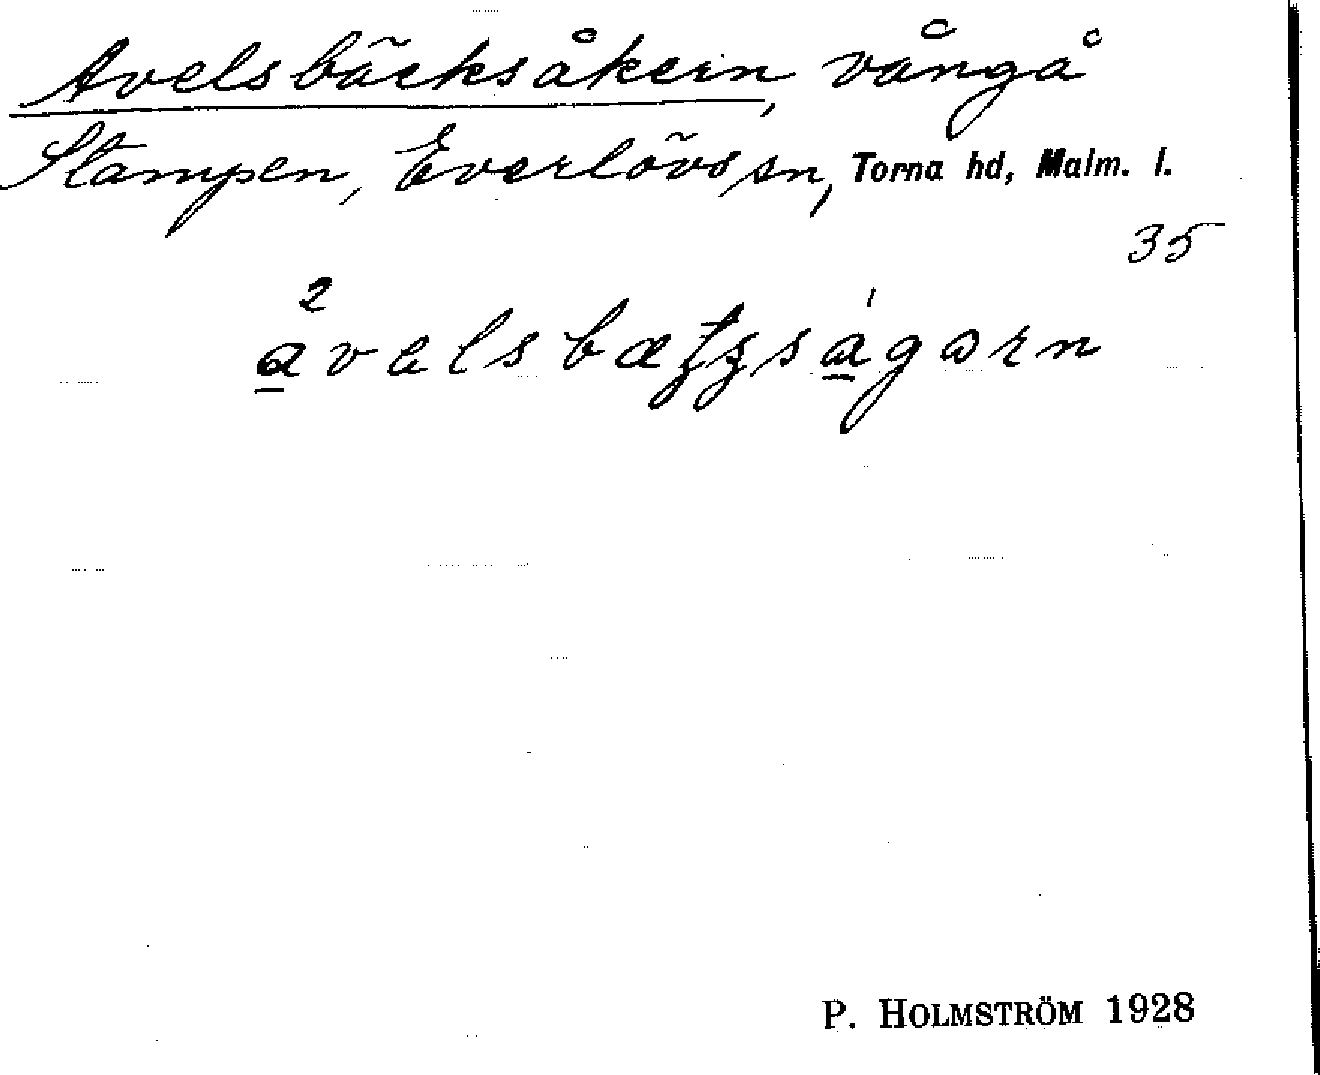 Avelsbäcksåkern, vång å
Stampen, Everlövs sn, Torna hd, Malm. l.
35
P. HOLMSTRÖM 1928